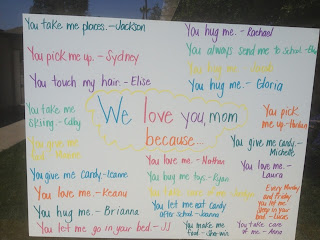 You take me places. - Jackson
You hug me. - Rachael
You pick me up. - Sydney
You always send me to school. -
You hug me. -
You touch my hair. - Elise
You hug me. - Gloria
We love you, mom
because...
You take me
skiing. - Colby
You pick
me up. -
You give me
You give me candy. -
Michelle
You love me. - Nathan
You love me. -
Laura
You give me candy - Leanne
You buy me toys. - Ryan
You take care of me.
Every Monday
and Friday
you let me
sleep in your
bed - Lucas
You love me. - Keanu
You let me eat candy
after school - Joanna
You hug me. - Brianna
You let me go in your bed. - JJ
You make me
food -
You take care
of me. - Anna